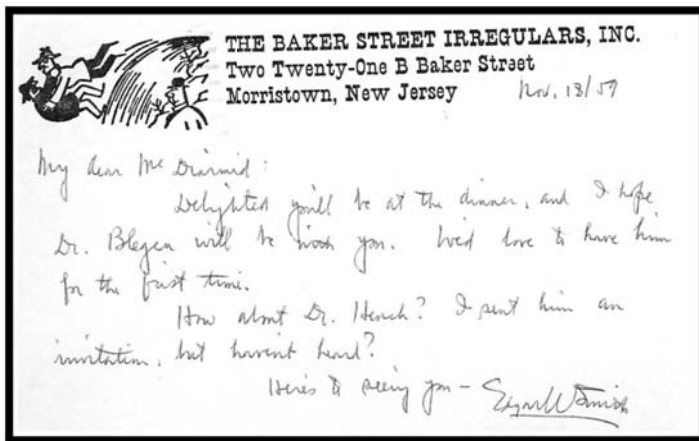 THE BAKER STREET IRREGULARS, INC.
Two Twenty-One B Baker Street
Morristown, New Jersey Nov. 13/59
My dear McDiarmid:
Delighted you'll be at the dinner, and I hope
Dr. Blegen will be with you. We'd love to have him
for the first time.
How about Dr. Hench? I sent him an
invitation, but haven't heard?
Here's to seeing you – Edgar W Smith